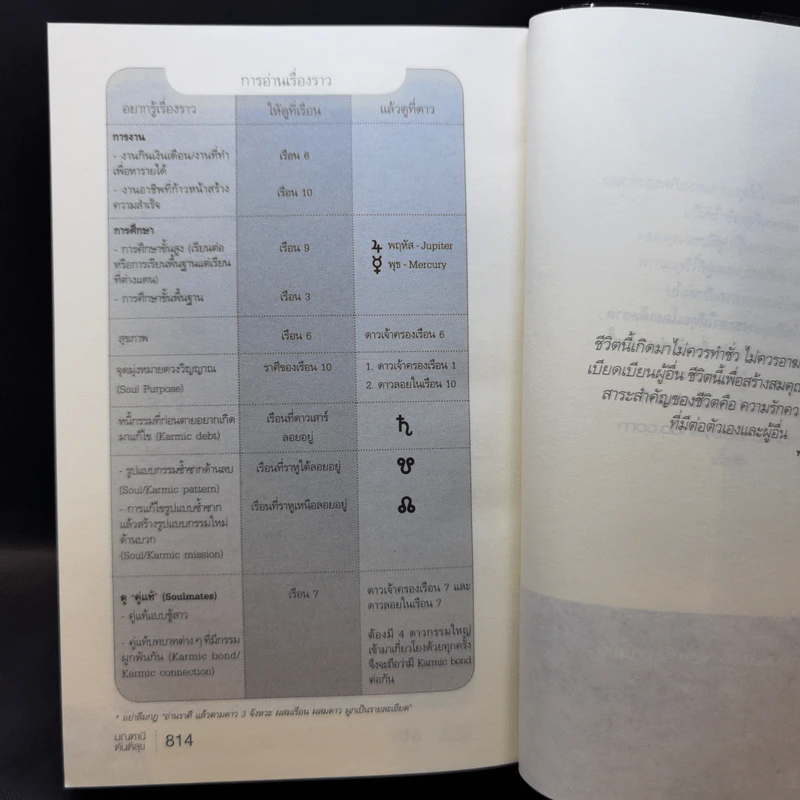 การอ่านเรื่องราว
อยากรู้เรื่องราว ให้ดูที่เรือน แล้วดูที่ดาว
การงาน
- งานกินเงินเดือน/งานที่ทำ เรือน 6
เพื่อหารายได้
- งานอาชีพที่ก้าวหน้าสร้าง เรือน 10
ความสำเร็จ
การศึกษา
- การศึกษาชั้นสูง (เรียนต่อ เรือน 9 ♃ พฤหัส - Jupiter
หรือการเรียนพื้นฐานแต่เรียน ☿ พุธ - Mercury
ที่ต่างแดน)
- การศึกษาชั้นพื้นฐาน เรือน 3
สุขภาพ เรือน 6 ดาวเจ้าครองเรือน 6
จุดมุ่งหมายดวงวิญญาณ ราศีของเรือน 10 1. ดาวเจ้าครองเรือน 1
(Soul Purpose) 2. ดาวลอยในเรือน 10
หนี้กรรมที่ก่อนตายอยากเกิด เรือนที่ดาวเสาร์ ♄
มาแก้ไข (Karmic debt) ลอยอยู่
- รูปแบบกรรมซ้ำซากด้านลบ เรือนที่ราหูใต้ลอยอยู่ ☋
(Soul/Karmic pattern)
- การแก้ไขรูปแบบซ้ำซาก เรือนที่ราหูเหนือลอยอยู่ ☊
แล้วสร้างรูปแบบกรรมใหม่
ด้านบวก
(Soul/Karmic mission)
ดู "คู่แท้" (Soulmates) เรือน 7 ดาวเจ้าครองเรือน 7 และ
- คู่แท้แบบชู้สาว ดาวลอยในเรือน 7
- คู่แท้บทบาทต่าง ๆ ที่มีกรรม ต้องมี 4 ดาวกรรมใหญ่
ผูกพันกัน (Karmic bond/ เข้ามาเกี่ยวโยงด้วยทุกครั้ง
Karmic connection) จึงจะถือว่ามี Karmic bond
ต่อกัน
* อย่าลืมกฎ "อ่านราศี แล้วตามดาว 3 จังหวะ ผสมเรือน ผสมดาว ผูกเป็นรายละเอียด"
มณฑานี
ตันติสุข 814
ชีวิตนี้เกิดมาไม่ควรทำชั่ว ไม่ควรอาฆ
เบียดเบียนผู้อื่น ชีวิตนี้เพื่อสร้างสมคุณ
สาระสำคัญของชีวิตคือ ความรักคว
ที่มีต่อตัวเองและผู้อื่น